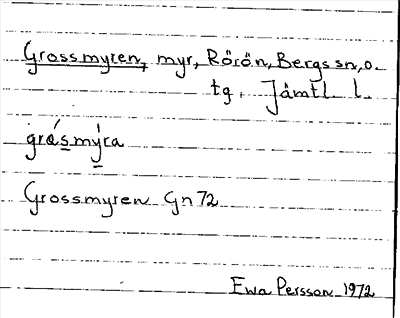 Grossmyren, myr, Rörön, Bergs sn, o.
tg, Jämtl. l.
grásmýra
Grossmyren Gn 72
Ewa Persson 1972